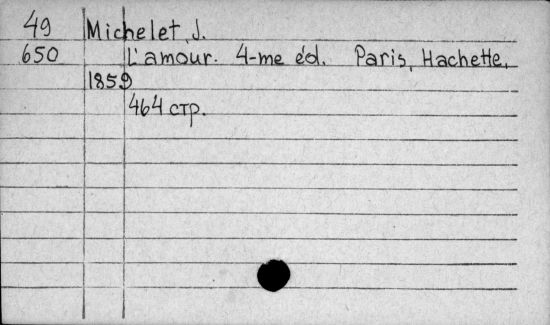 49 Michelet, J.
650 L'amour. 4-me éd. Paris, Hachette,
1859
464 стр.